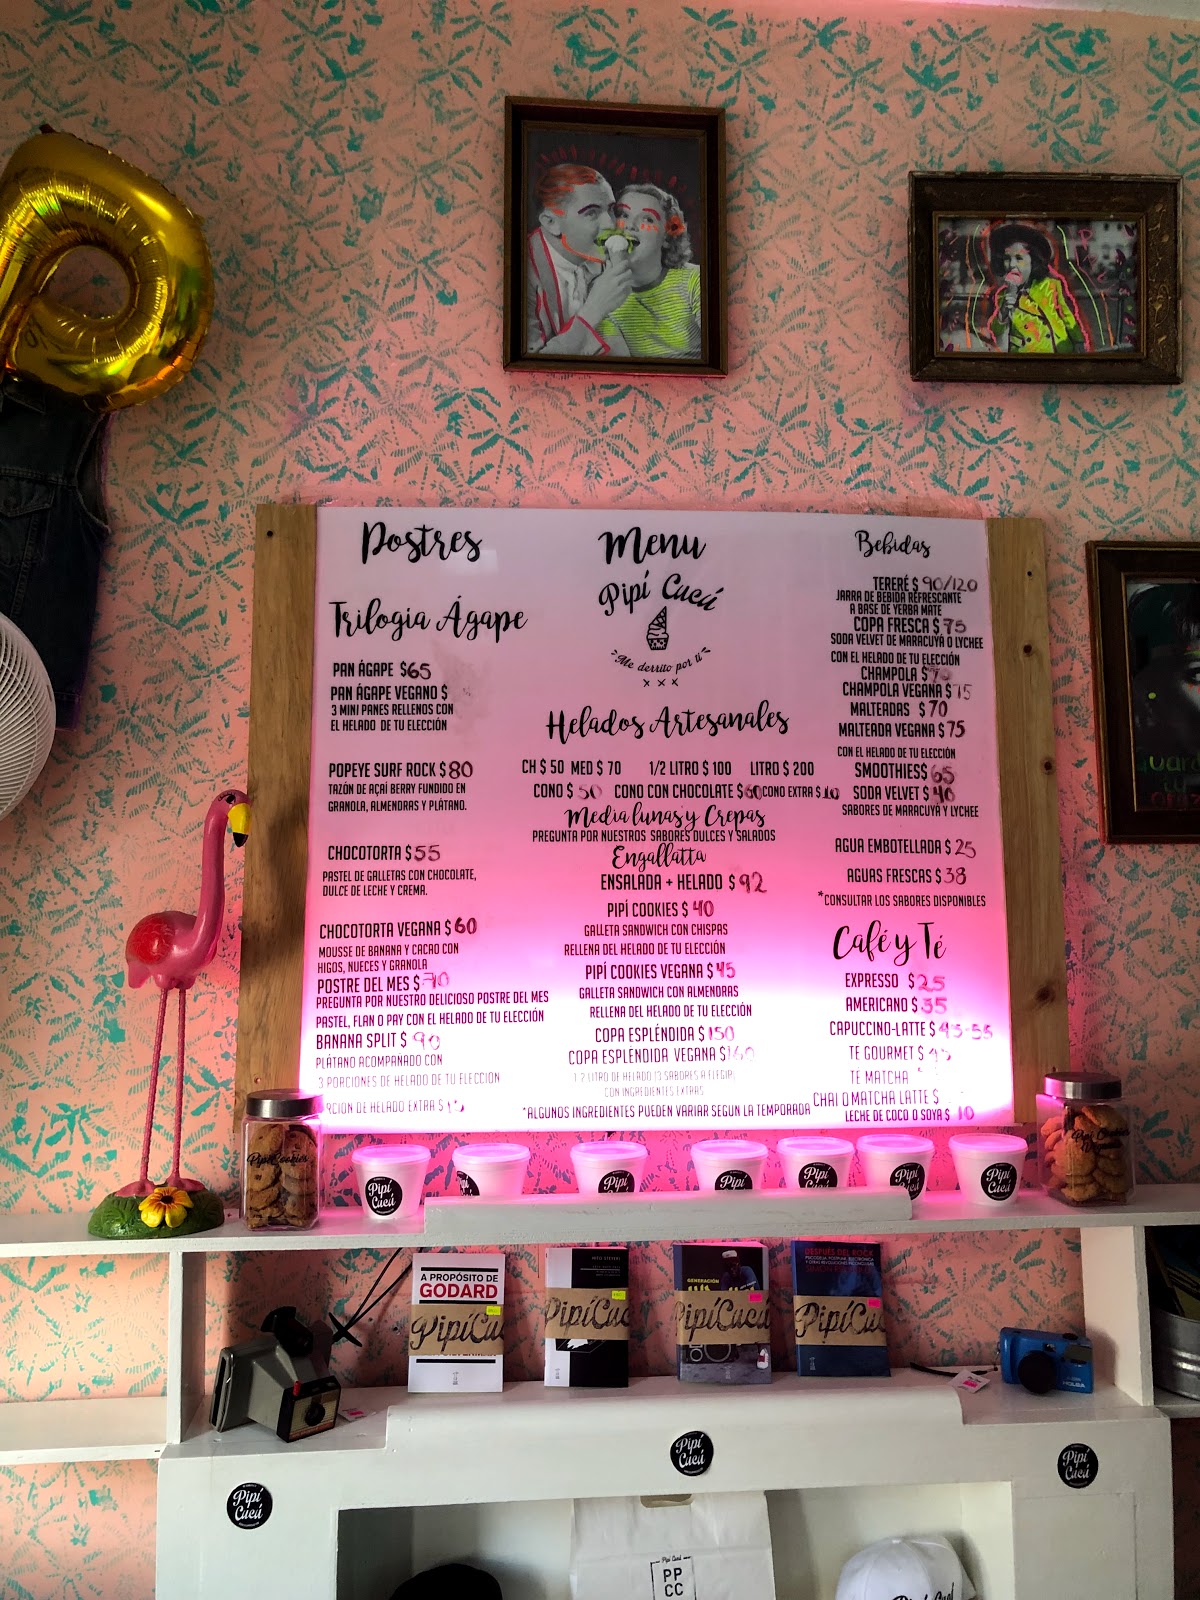 Postres
Trilogia Ágape
PAN ÁGAPE $65
PAN ÁGAPE VEGANO $
3 MINI PANES RELLENOS CON
EL HELADO DE TU ELECCIÓN
POPEYE SURF ROCK $80
TAZÓN DE AÇAÍ BERRY FUNDIDO EN
GRANOLA, ALMENDRAS Y PLÁTANO.
CHOCOTORTA $55
PASTEL DE GALLETAS CON CHOCOLATE,
DULCE DE LECHE Y CREMA.
CHOCOTORTA VEGANA $60
MOUSSE DE BANANA Y CACAO CON
HIGOS, NUECES Y GRANOLA
POSTRE DEL MES $70
PREGUNTA POR NUESTRO DELICIOSO POSTRE DEL MES
PASTEL, FLAN O PAY CON EL HELADO DE TU ELECCIÓN
BANANA SPLIT $90
PLÁTANO ACOMPAÑADO CON
3 PORCIONES DE HELADO DE TU ELECCION
RCION DE HELADO EXTRA $
Menu
Pipí Cucú
"Me derrito por ti"
x x x
Helados Artesanales
CH $50 MED $70 1/2 LITRO $100 LITRO $200
CONO $50 CONO CON CHOCOLATE $60 CONO EXTRA $10
Media lunas y Crepas
PREGUNTA POR NUESTROS SABORES DULCES Y SALADOS
Engallatta
ENSALADA + HELADO $92
PIPÍ COOKIES $40
GALLETA SANDWICH CON CHISPAS
RELLENA DEL HELADO DE TU ELECCIÓN
PIPÍ COOKIES VEGANA $45
GALLETA SANDWICH CON ALMENDRAS
RELLENA DEL HELADO DE TU ELECCIÓN
COPA ESPLÉNDIDA $150
COPA ESPLÉNDIDA VEGANA $160
1/2 LITRO DE HELADO (3 SABORES A ELEGIR)
CON INGREDIENTES EXTRAS
*ALGUNOS INGREDIENTES PUEDEN VARIAR SEGUN LA TEMPORADA
Bebidas
TERERÉ $90/120
JARRA DE BEBIDA REFRESCANTE
A BASE DE YERBA MATE
COPA FRESCA $75
SODA VELVET DE MARACUYÁ O LYCHEE
CON EL HELADO DE TU ELECCIÓN
CHAMPOLA $70
CHAMPOLA VEGANA $75
MALTEADAS $70
MALTEADA VEGANA $75
CON EL HELADO DE TU ELECCIÓN
SMOOTHIES $65
SODA VELVET $40
SABORES DE MARACUYÁ Y LYCHEE
AGUA EMBOTELLADA $25
AGUAS FRESCAS $38
*CONSULTAR LOS SABORES DISPONIBLES
Café y Té
EXPRESSO $25
AMERICANO $35
CAPUCCINO-LATTE $45-55
TE GOURMET $45
TE MATCHA
CHAI O MATCHA LATTE $
LECHE DE COCO O SOYA $10
Pipi Cookies
Pipi Cookies
Pipí
Cucú
Pipí
Pipí
Pipí
Pipí
Cucú
Pipí
Cucú
A PROPÓSITO DE
GODARD
PipíCu
PipíCu
GENERACIÓN
PipíCucú
DESPUÉS DEL ROCK
PipíCu
HOLGA
Pipí
Cucú
Pipí
Cucú
Pipí
Cucú
Pipí Cucú
PP
CC
Pipí Cucú